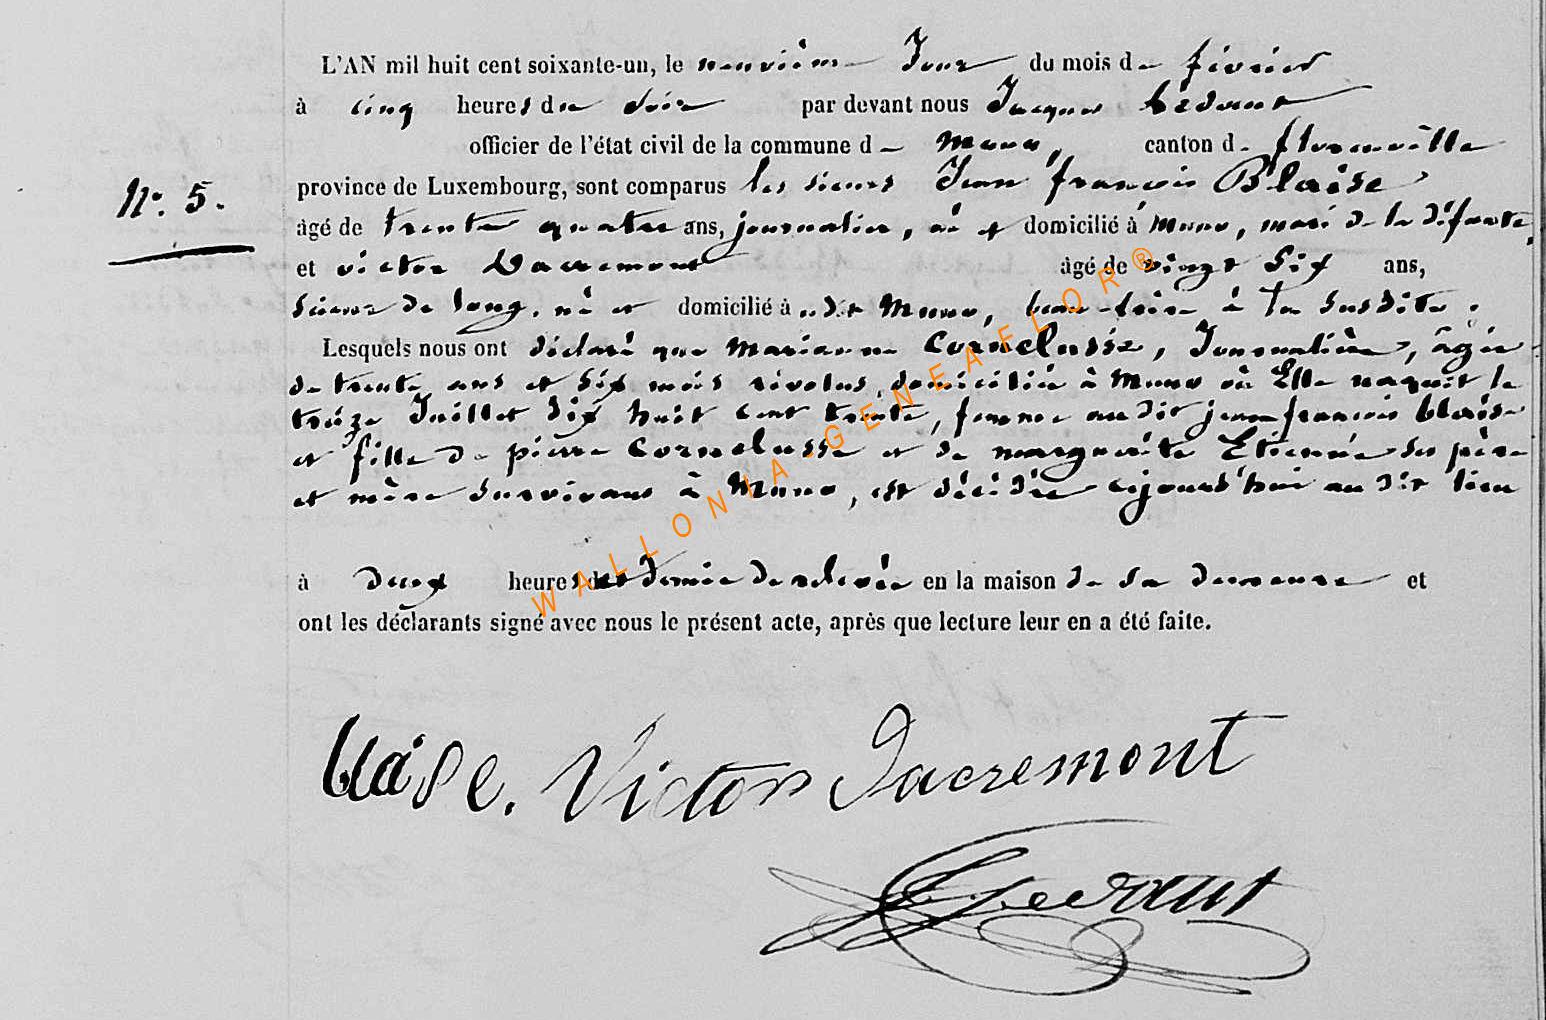 L'AN mil huit cent soixante-un, le neuvième Jour du mois de février
à cinq heures du soir par devant nous Jacques
officier de l'état civil de la commune de Muno, canton de florenville
N°. 5.
province de Luxembourg, sont comparus les sieurs Jean françois Blaise
âgé de trente quatre ans, journalier, né et domicilié à Muno, mari de la défunte,
et victor Dacremont âgé de vingt six ans,
scieur de long, né et domicilié à dit Muno, beau-frère à la susdite.
Lesquels nous ont déclaré que Marianne Cornelusse, Journalière, âgée
de trente ans et six mois révolus, domiciliée à Muno où Elle naquit le
treize Juillet dix huit cent trente, femme au dit jean françois blaise
et fille de pierre Cornelusse et de marguerite Etienne ses père
et mère survivans à Muno, est décédée aujourd'hui au dit lieu
à deux heures et demie de relevée en la maison de sa demeure et
ont les déclarants signé avec nous le présent acte, après que lecture leur en a été faite.
blaise. Victor Dacremont
WALLONIA-GENEAFLOR®